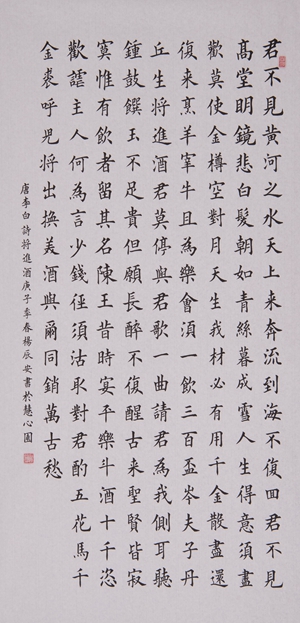 君不見黃河之水天上来奔流到海不復回君不見
高堂明鏡悲白髮朝如青絲暮成雪人生得意須盡
歡莫使金樽空對月天生我材必有用千金散盡還
復来烹羊宰牛且為樂會須一飲三百盃岑夫子丹
丘生将進酒君莫停與君歌一曲請君為我側耳聽
鍾鼓饌玉不足貴但願長醉不復醒古来聖賢皆寂
寞惟有飲者留其名陳王昔時宴平樂斗酒十千恣
歡謔主人何為言少錢徑須沽取對君酌五花馬千
金裘呼兒将出換美酒與爾同銷萬古愁
唐李白詩将進酒庚子季春楊辰安書於慧心園